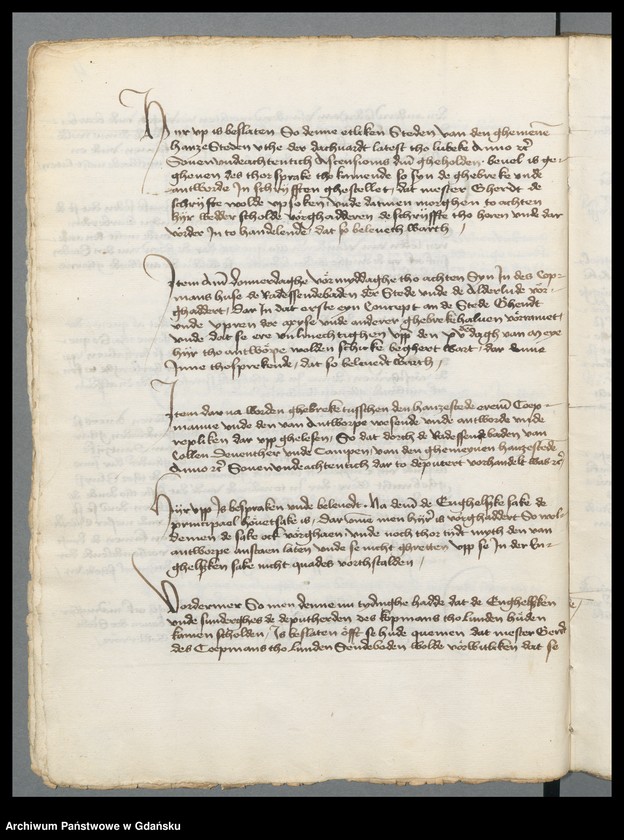 Hir vp is besloten So denne etliken Steden van den ghemenen
hanze Steden vthe der dachuardt latest tho lubeke Anno etc
Souenvndeachtentich Ascensionis dni gheholden beuel is ge-
gheuen des thor sprake tho kamende so syn de ghebreke vnde
antworde In schryfften ghestellet, dat mester Gherdt de
schryffte wolde vpsoken vnde dat men morghen to achten
hyr wedder scholde vorghadderen de schryffte tho horen vnd dar
vorder In to handelende, dat so beleuet warth /
Item Am donnerdaghe vormyddaghe tho achten Syn In des Cop-
mans huse de Radessendebaden der Stede vnde de Alderlude vor-
ghaddert, dar In dat erste eyn Concept an de Stede Ghendt
vnde ypren der axyse vnde anderer ghebreke haluen vorramet,
vnde dat se ere vulmechtighen vpp den dagh van
hyr tho antworpe wolden schicken begheert wart, dar
Inne tho sprekende, dat so beleuedt warth /
Item dar na worden ghebreke tusschen den hanzestede erem Coop-
manne vnde den van Antworpe wesende vnde antworde vnde
repliken dar vpp ghelesen, So dat dorch de Radessendebaden van
Collen Deuenther vnde Campen, van den ghemeynen hanzestede
Anno etc Souenvndeachtentich dar to deputeret vorhandelt was etc
Hiir vpp Is bespraken vnde beleuedt, Na dem de Enghelsche sake de
principael houetsake is, dar vmme men hyr is vorghaddert So wol-
demen de sake ock vorghaen, vnde noch thor tidt myth den van
antworpe anstaen laten vnde se nicht vpp se In der En-
ghelschen sake nicht quades vorthstalden /
Vordermer So men denne nu tydinghe hadde dat de Enghelschen
vnde sunderghes de deputherden des kopmans tho lunden huden
kamen scholden, Is besloten offt se hude quemen dat mester Gerdt
des Coopmans tho lunden Sendebaden wolde vorwitliken dat se
Archiwum Państwowe w Gdańsku